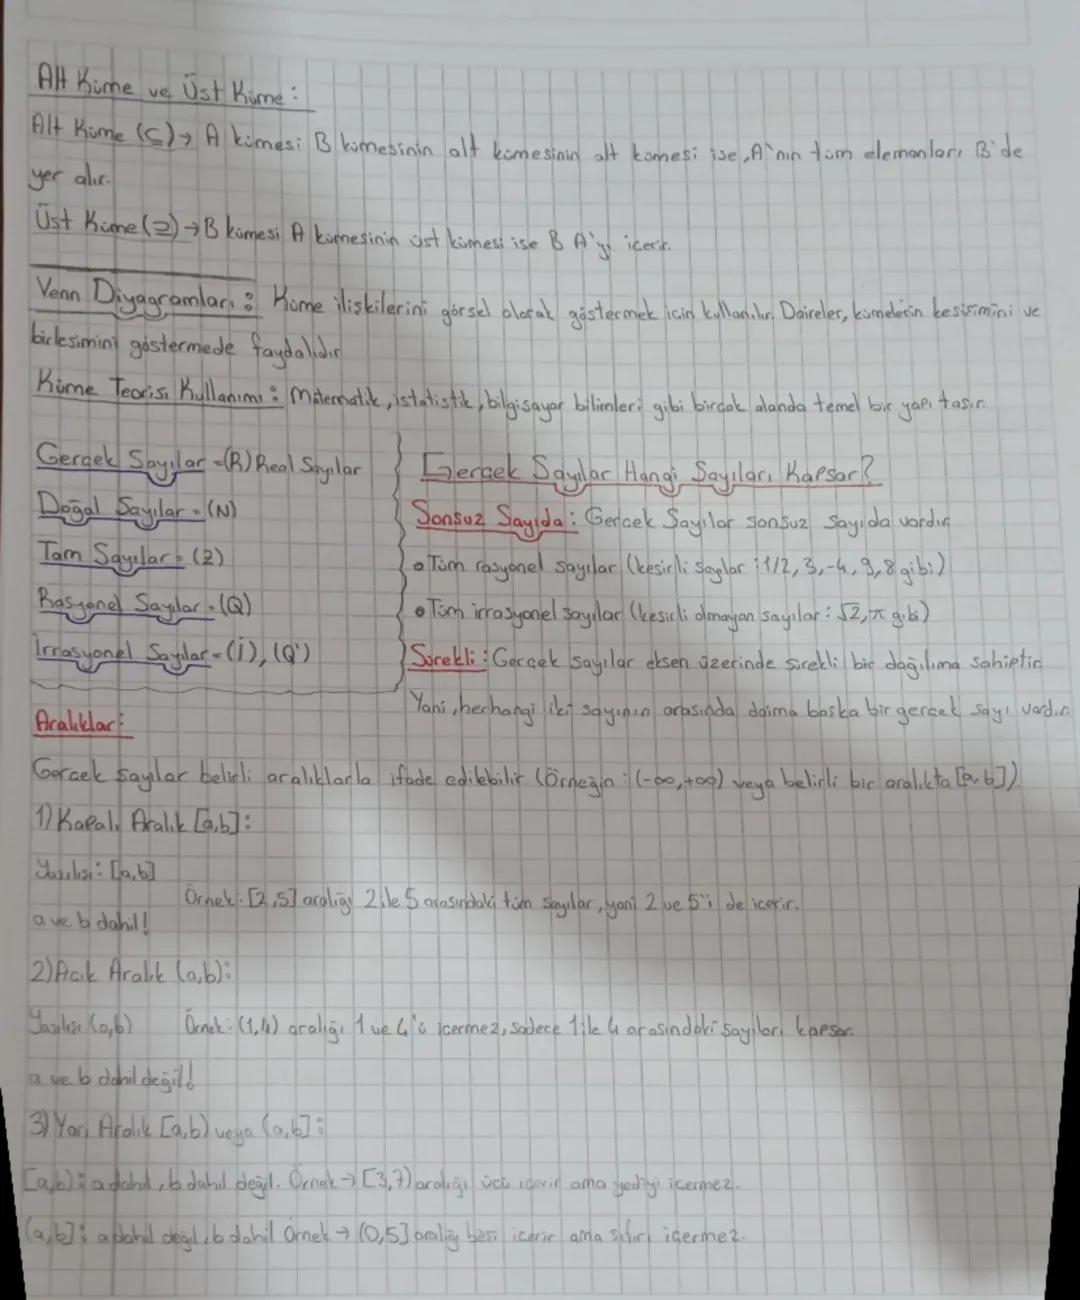 Alt Küme ve Üst Küme:
Alt Küme (⊆)→ A kümesi B kümesinin alt kümesinin alt kümesi ise, A'nın tüm elemanları B'de
yer alır.
Üst Küme (⊇)→B kümesi A kümesinin üst kümesi ise B A'yı içerir.
Venn Diyagramları: Küme iliskilerini görsel olarak göstermek icin kullanılır. Daireler, kümelerin kesisimini ve
birlesimini göstermede faydalıdır
Küme Teorisi Kullanımı: Matematik, istatistik, bilgisayar bilimleri gibi bircok alanda temel bir yapı tasır.
Gercek Sayılar =(R) Real Sayılar
Doğal Sayılar = (N)
Tam Sayılar = (Z)
Rasyonel Sayılar = (Q)
İrrasyonel Sayılar = (İ), (Q')
Gercek Sayılar Hangi Sayıları Kapsar?
Sonsuz Sayıda: Gercek Sayılar sonsuz sayıda vardır
• Tüm rasyonel sayılar (kesirli sayılar : 1/2, 3, -4, 9,8 gibi)
• Tüm irrasyonel sayılar (kesirli olmayan sayılar : √2, π gibi)
Sürekli: Gercek sayılar eksen üzerinde sürekli bir dağılıma sahiptir
Yani, herhangi iki sayının arasında daima baska bir gercek sayı vardır.
Aralıklar:
Gercek sayılar belirli aralıklarla ifade edilebilir (Örneğin : (-∞,+∞) veya belirli bir aralıkta [a,b]).
1) Kapalı Aralık [a,b]:
Yazılısı: [a,b]
Örnek: [2,5] aralığı 2 ile 5 arasındaki tüm sayılar, yani 2 ve 5'i de icerir.
a ve b dahil!
2) Acık Aralık (a,b):
Yazılısı (a,b) Örnek: (1,4) aralığı 1 ve 4'ü icermez, sadece 1 ile 4 arasındaki sayıları kapsar.
a ve b dahil değil!
3) Yarı Aralık [a,b) veya (a,b]:
[a,b): a dahil, b dahil değil. Örnek → [3,7) aralığı ücü icerir ama yediyi icermez.
(a,b]: a dahil değil, b dahil Örnek → (0,5] aralığı besi icerir ama sıfırı icermez.